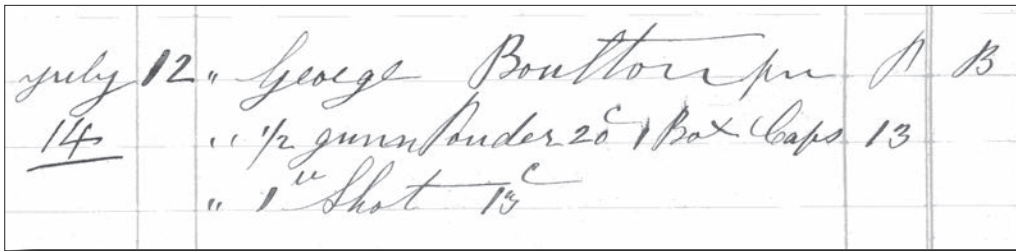 July 12 " George Boultton pr A B
14 " 1/2 gunn Pouder 20c 1 Box Caps 13
" 1 lb Shot 13c